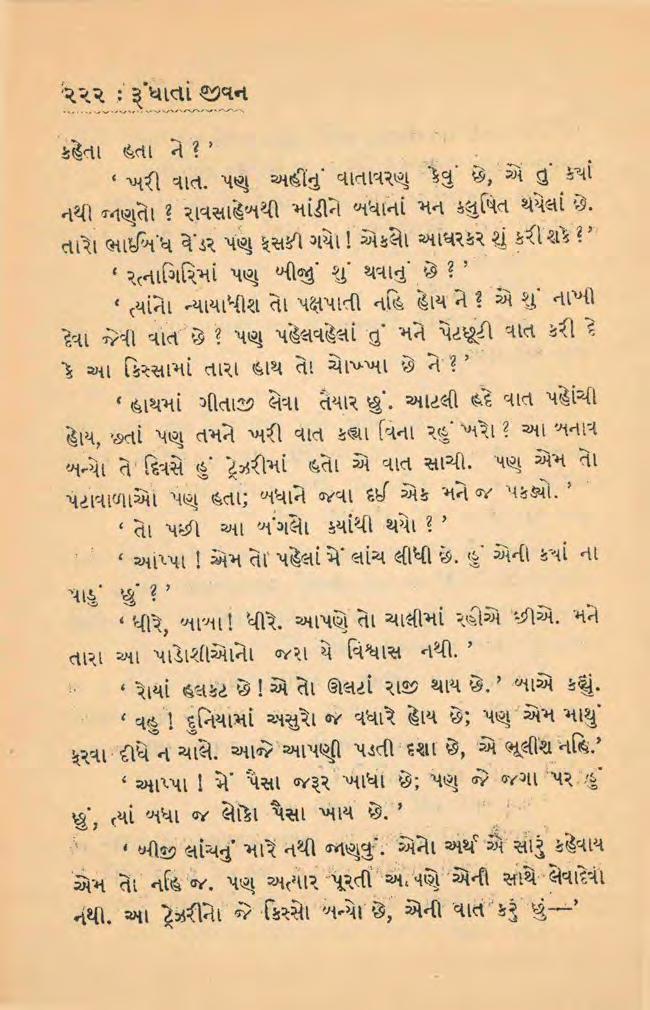 ૨૨૨ : રૂંધાતાં જીવન
કહેતા હતા ને ? ’
‘ ખરી વાત. પણ અહીંનું વાતાવરણ કેવું છે, એ તું ક્યાં
નથી જાણતો ? રાવસાહેબથી માંડીને બધાનાં મન કલુષિત થયેલાં છે.
તારો ભાઈબંધ વેંડર પણ ફસકી ગયો ! એકલો આધરકર શું કરી શકે ?’
‘ રત્નાગિરિમાં પણ બીજું શું થવાનું છે ? ’
‘ ત્યાંનો ન્યાયાધીશ તો પક્ષપાતી નહિ હોય ને ? એ શું નાખી
દેવા જેવી વાત છે ? પણ પહેલવહેલાં તું મને પેટછૂટી વાત કરી દે
કે આ કિસ્સામાં તારા હાથ તો ચોખ્ખા છે ને ? ’
‘ હાથમાં ગીતાજી લેવા તૈયાર છું. આટલી હદે વાત પહોંચી
હોય, છતાં પણ તમને ખરી વાત કહ્યા વિના રહું ખરો ? આ બનાવ
બન્યો તે દિવસે હું ટ્રેઝરીમાં હતો એ વાત સાચી. પણ એમ તો
પટાવાળાઓ પણ હતા; બધાને જવા દઈ એક મને જ પકડ્યો. ’
‘ તો પછી આ બંગલો ક્યાંથી થયો ? ’
‘ આપ્પા ! એમ તો પહેલાં મેં લાંચ લીધી છે. હું એની ક્યાં ના
પાડું છું ? ’
‘ ધીરે, બાબા ! ધીરે. આપણે તો ચાલીમાં રહીએ છીએ. મને
તારા આ પાડોશીઓનો જરા યે વિશ્વાસ નથી. ’
‘ રોયાં હલકટ છે ! એ તો ઊલટાં રાજી થાય છે.’ બાએ કહ્યું.
‘ વહુ ! દુનિયામાં અસુરો જ વધારે હોય છે; પણ એમ માથું
ફરવા દીધે ન ચાલે. આજે આપણી પડતી દશા છે, એ ભૂલીશ નહિ.’
‘ આપ્પા ! મેં પૈસા જરૂર ખાધા છે; પણ જે જગા પર હું
છું, ત્યાં બધા જ લોકો પૈસા ખાય છે. ’
‘ બીજી લાંચનું મારે નથી જાણવું. એનો અર્થ એ સારું કહેવાય
એમ તો નહિ જ. પણ અત્યાર પૂરતી આપણે એની સાથે લેવાદેવા
નથી. આ ટ્રેઝરીનો જે કિસ્સો બન્યો છે, એની વાત કરું છું—’